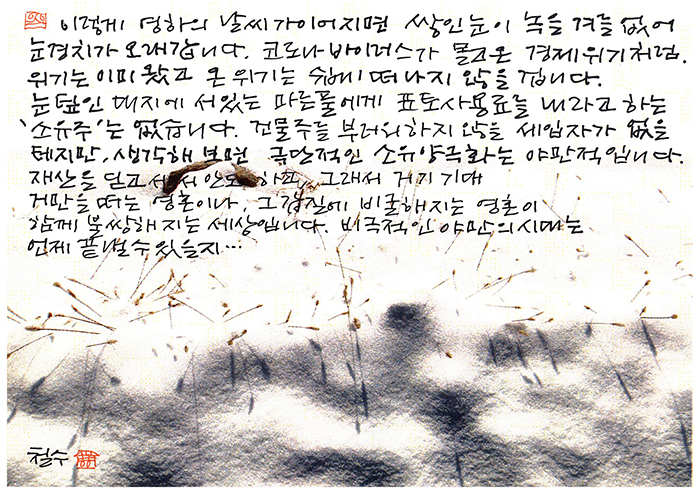 이렇게 영하의 날씨가 이어지면 쌓인 눈이 녹을 겨를 없어
눈경치가 오래갑니다. 코로나 바이러스가 몰고온 경제위기처럼.
위기는 이미 왔고 온 위기는 쉽게 떠나지 않을 겁니다.
눈 덮인 대지에 서있는 마른풀에게 표토사용료를 내라고 하는
'소유주'는 없습니다. 건물주를 부러워하지 않을 세입자가 없을
테지만, 생각해 보면 극단적인 소유양극화는 야만적입니다.
재산을 딛고 서서 안도하고, 그래서 거기 기대
거만을 떠는 영혼이나, 그 갑질에 비굴해지는 영혼이
함께 불쌍해지는 세상입니다. 비극적인 야만의 시대는
언제 끝낼 수 있을지…
철수